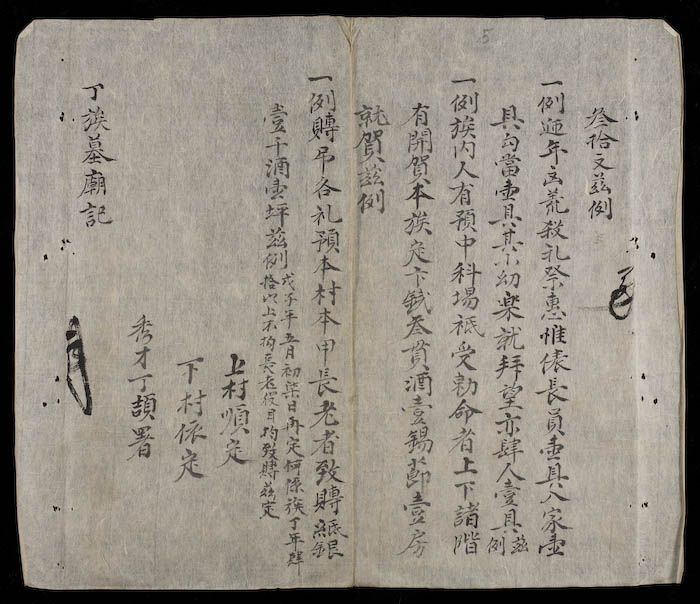 5
叄拾文茲例
一例迎年文荒殺礼祭惠惟俵長員壹具入家壹
具勾當壹具其小幼樂就拜望亦肆人壹具茲例
一例族内人有預中科塲祗受勅命者上下諸階
有開賀本族定卞錢叄貫酒壹錫節壹房
就賀茲例
一例賻吊各礼預本村本甲長老者致賻紙銀
壹千酒壹坪茲例戊子年五月初柒日再定何係族丁年肆
拾以上不拘長老假目均致賻茲定
上村順定
下村依定
秀才丁頡署
丁族墓廟記